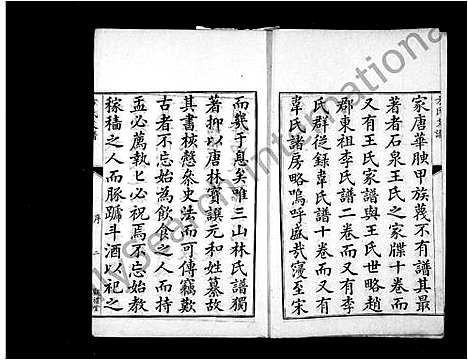 家唐華腴甲族蔑不有譜其最
著者石泉王氏之家牒十卷而
又有王氏家譜與王氏世略趙
郡東祖李氏譜二卷而又有李
氏群從錄韋氏譜十卷而又有
韋氏諸房略嗚呼盛哉寖至宋
而幾于息矣唯三山林氏譜獨
著抑以唐林寶譔元和姓纂故
其書核慤叅史法而可傳竊歎
古者不忘始為飲食之人而持
盂必薦執匕必祝焉不忘始教
稼穡之人而豚蹏斗酒以祀之
序
二